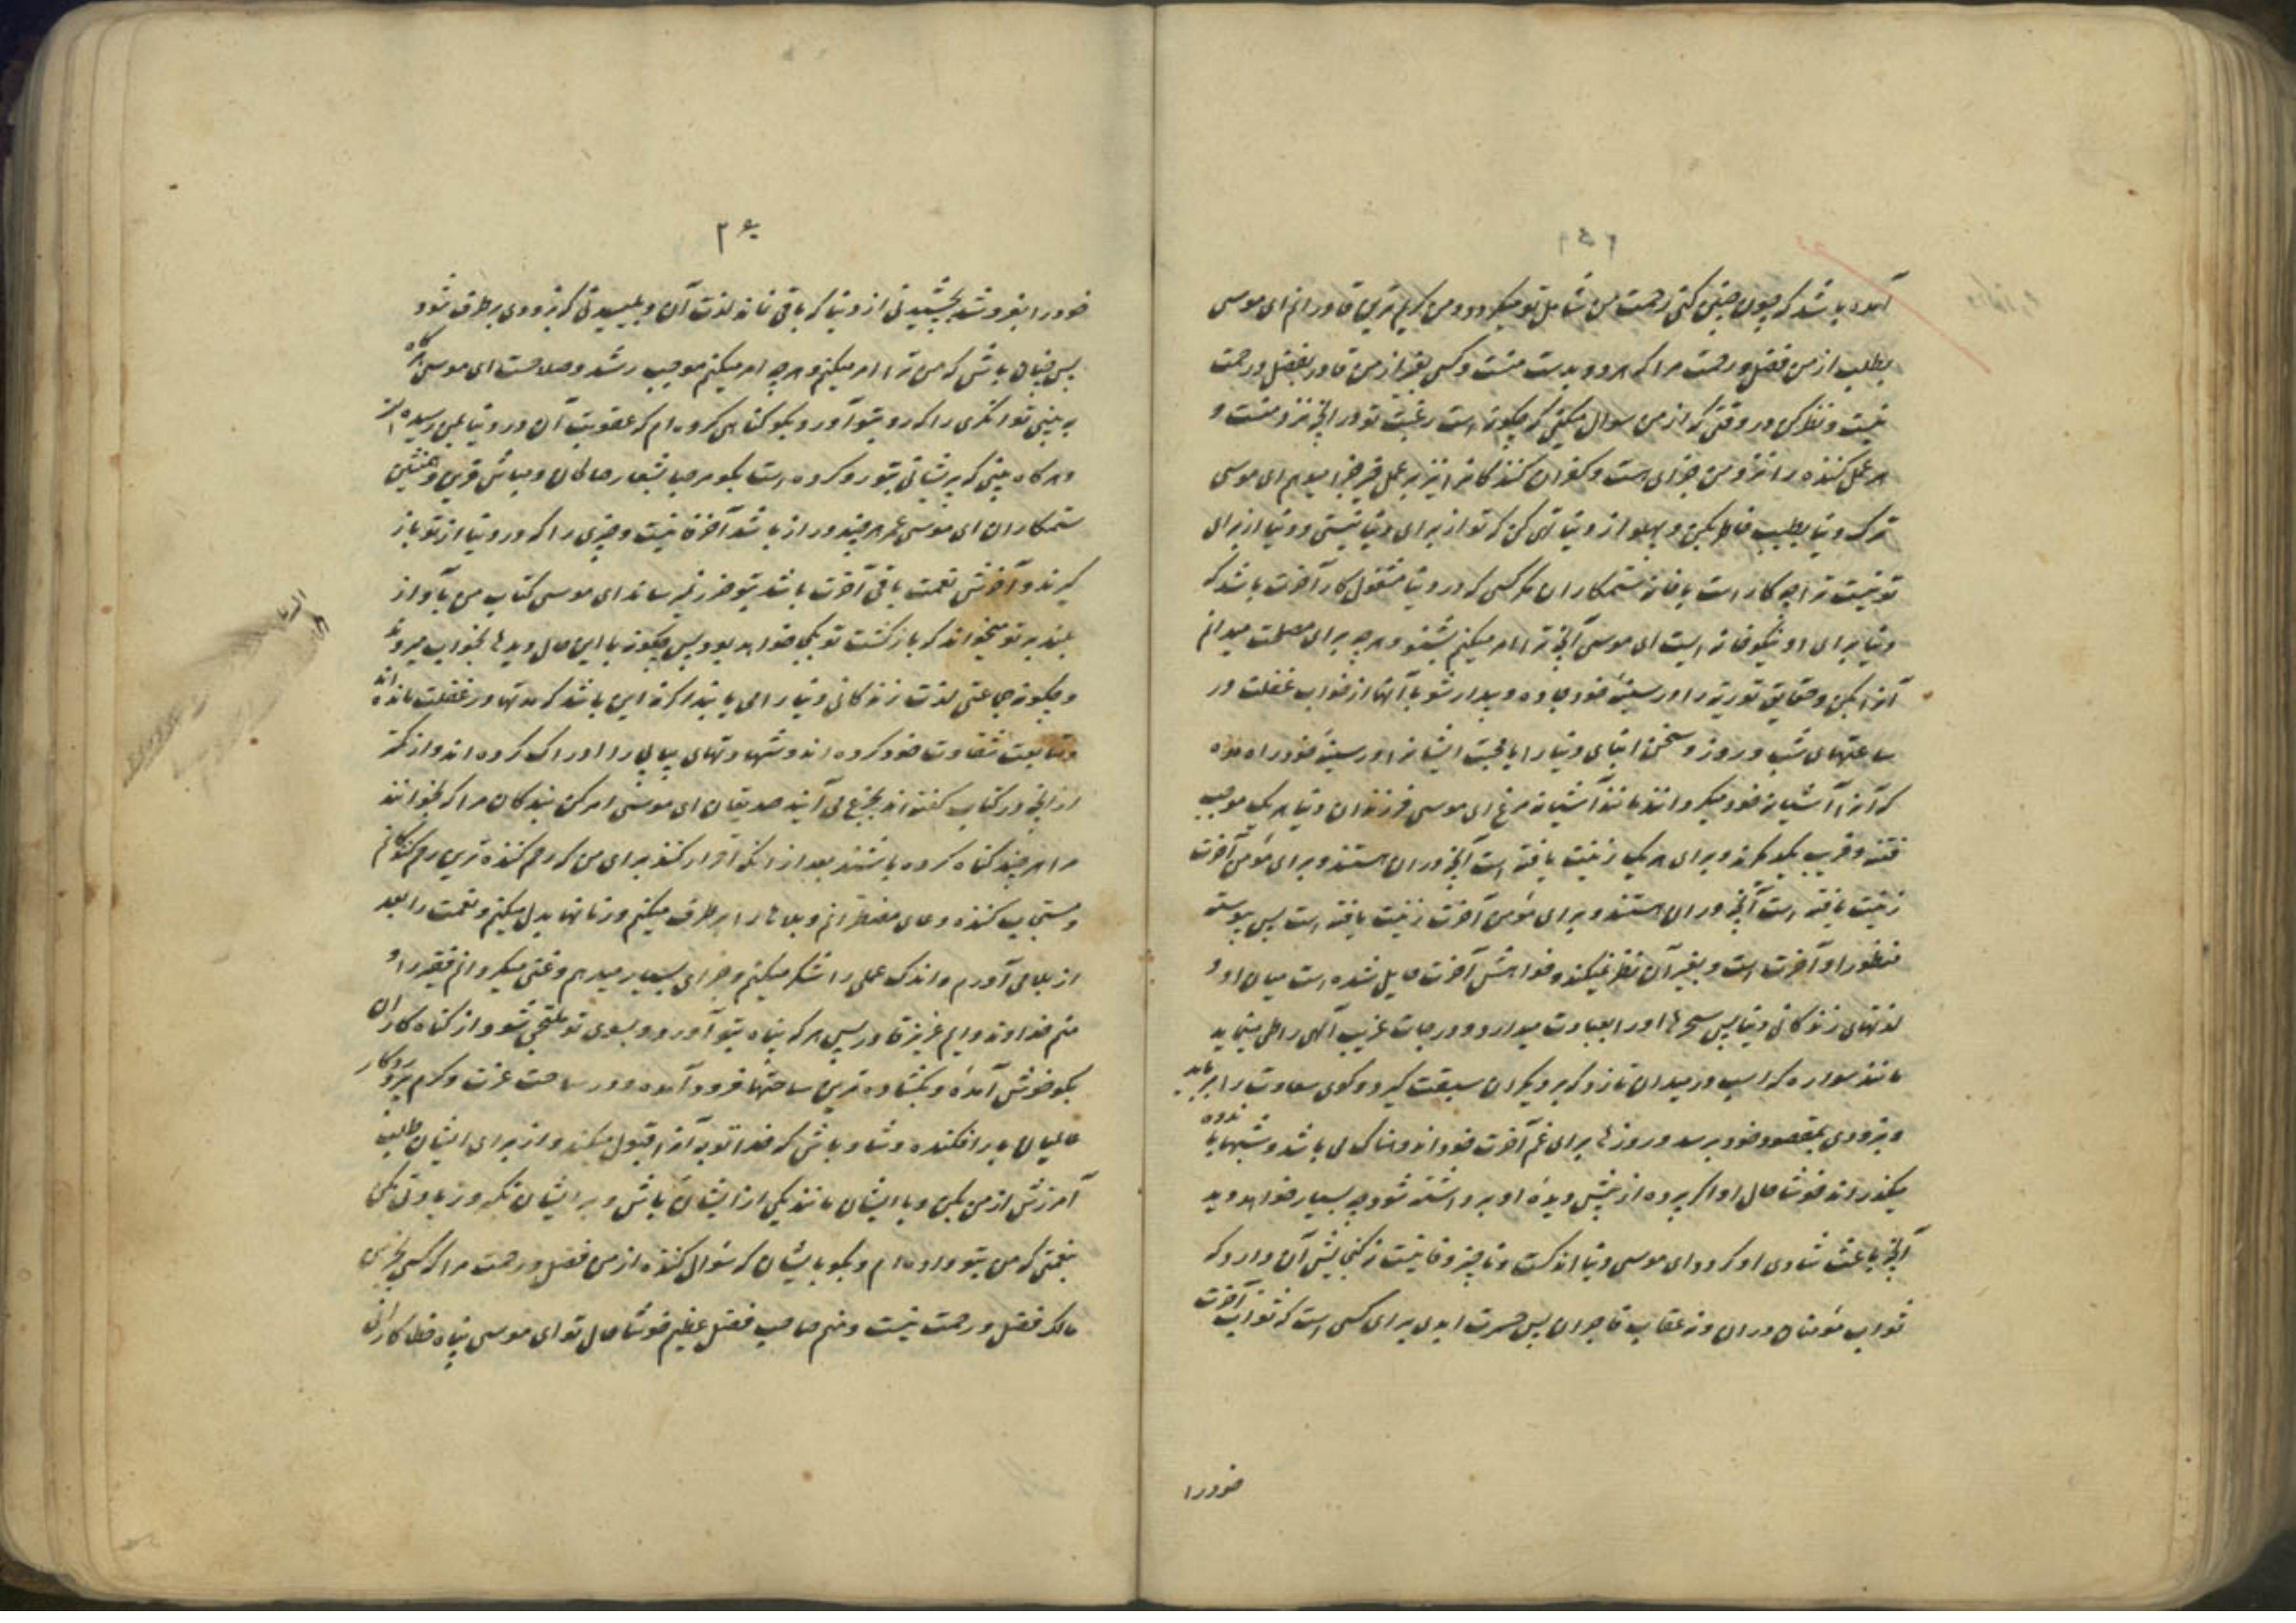 آمده باشد که چون چنین کنی رحمت من شامل تو میگردد و من کریم ترین قادرانم ای موسی
بطلب از من فضل و رحمت مرا که هر دو بدست منست و کسی بغیر از من قادر بفضل و رحمت
نیست و نظر کن در وقتی که از من سوال میکنی که چگونه است رغبت تو در انچه نزد منست و
هر عمل کننده را نزد من جزای هست و کفران کنندکانرا نیز بر عمل خیر جزا میدهم ای موسی
ترک دنیا بطیب خاطر بکن و پهلو از دنیا تهی کن که تو از برای دنیا نیستی و دنیا از برای
تو نیست ترا چه کار است با خانه ستمکاران مکر کسی که در دنیا مشغول کار آخرت باشد که
دنیا برای او نیکو خانه ایست ای موسی آنچه ترا امر میکنم بشنو و هر چه برای مصلحت میدانم
آنرا بکن و حقایق توریة را در سینه خود جا ده و بیدار شو با آنها از خواب غفلت در
ساعتهای شب و روز و سخن ابنای دنیا را یا محبت ایشانرا در سینه خود راه مده
که آنرا آشیانه خود میکردانند مانند آشیانه مرغ ای موسی فرزندان دنیا هر یک موجب
فتنه و فریب یکدیکرند و برای هر یک زینت یافته است آنچه در ان هستند و برای مومن آخرت
زینت یافته است آنچه در ان هستند و برای مومن آخرت زینت یافته است پس پیوسته
منظور او آخرت است و بغیر آن نظر نمیکند و خواهش آخرت حایل شده است میان او و
لذتهای زندکانی دنیا پس سحرها او را بعبادت میدارد و درجات غریب الهی را طی مینماید
مانند سواره که اسب در میدان تازد که بر دیکران سبقت گیرد و کوی سعادت را برباید
و بزودی بمقصود خود برسد و روزها برای غم آخرت خود اندوهناک می باشد و شبها با اندوه
میکذراند خوشا حال او اکر پرده از پیش دیده او برداشته شود چه بسیار خواهد دید
آنچه باعث شادی او کردد ای موسی دنیا اندکست و ناچیز و فانیست و کنجایش آن ندارد که
ثواب مومنان در ان و نه عقاب فاجران پس حسرت ابدی برای کسی است که ثواب آخرت
خود را
۲۶۰
خود را بفروشد بچشیدنی از دنیا که باقی نماند لذت آن و بلیسیدنی که بزودی برطرف شود
پس چنان باش که من ترا امر میکنم و هر چه امر میکنم موجب رشد و صلاحست ای موسی هرکاه
به بینی توانکری را که رو بتو آورد بکو کناهی کرده ام که عقوبت آن در دنیا بمن رسیده است
و هرکاه بینی که پریشانی بتو رو کرده است بکو مرحبا بشعار صالحان و مباش قرین و همنشین
ستمکاران ای موسی عمر هر چند دراز باشد آخر فانیست و چیزی را که در دنیا از تو باز
گیرند و آخرش نعمت باقی آخرت باشد بتو ضرر نمیرساند ای موسی کتاب من بآواز
بلند بر تو میخواند که بازکشت تو بکجا خواهد بود پس چکونه با این حال دیدها بخواب میرود
و چکونه جماعتی لذت زندکانی دنیا را می یابند اکر نه این باشد که مدتها در غفلت مانده اند
و متابعت شقاوت خود کرده اند و شهوتهای پیاپی را ادراک کرده اند و از کمتر
از انچه در کتاب کفته اند بجزع می آیند صدیقان ای موسی امر کن بندکان مرا که بخوانند
مرا هر چند کناه کرده باشند بعد از انکه اقرار کنند برای من که رحم کننده ترین رحم کنندکانم
و مستجاب کننده دعای مضطرانم و بلاها را برطرف میکنم و زمانها بدل میکنم و نعمت را بعد
از بلا می آورم و اندک عملی را شکر میکنم و جزای بسیار میدهم و غنی میکردانم فقیر را و
منم خداوند دایم عزیز قادر پس هر که پناه بتو آورد و بسوی تو ملتجی شود از کناه کاران
بکو خوش آمدهٔ و بکشاده ترین ساحتها فرود آمدهٔ و در ساحت عزت و کرم پروردکار
عالمیان بار افکنده و شاد باش که خدا توبه آنرا قبول میکند و از برای ایشان طلب
آمرزش از من بکن و با ایشان مانند یکی از ایشان باش و بر ایشان تکبر و زیادتی مکن
بنعمتی که من بتو داده ام و بکو بایشان که سوال کنند از من فضل و رحمت مرا که کسی بجز من
مالک فضل و رحمت نیست و منم صاحب فضل عظیم خوشا حال تو ای موسی پناه خطاکارانی